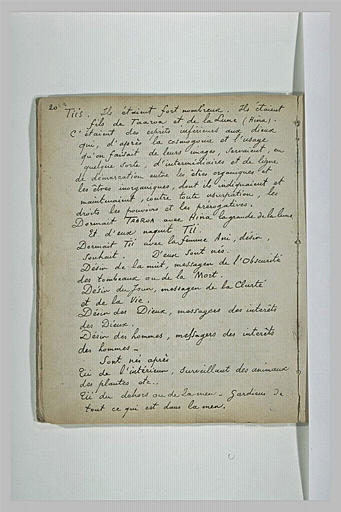 20
Tiis. Ils étaient fort nombreux. Ils étaient
fils de Taaroa et de la Lune (Hina).
C'étaient des esprits inférieurs aux dieux
qui, d'après la cosmogonie et l'usage
qu'on faisait de leurs images, servaient, en
quelque sorte d'intermédiaires et de ligne
de démarcation entre les êtres organiques et
les êtres inorganiques, dont ils indiquaient et
maintenaient, contre toute usurpation, les
droits les pouvoirs et les prérogatives.
Dormait TAAROA avec Hina la grande de la lune
Et d'eux naquit Tii.
Dormait Tii avec la femme Ani, désir,
souhait. D'eux sont nés.
Désir de la nuit, messager de l'Obscurité
des tombeaux ou de la Mort.
Désir du Jour, messager de la Clarté
et de la Vie.
Désir des Dieux, messagers des intérêts
des Dieux.
Désir des hommes, messagers des intérêts
des hommes -
Sont nés après
Tii de l'intérieur, surveillant des animaux
des plantes etc..
Tii du dehors ou de la mer - Gardien de
tout ce qui est dans la mer.